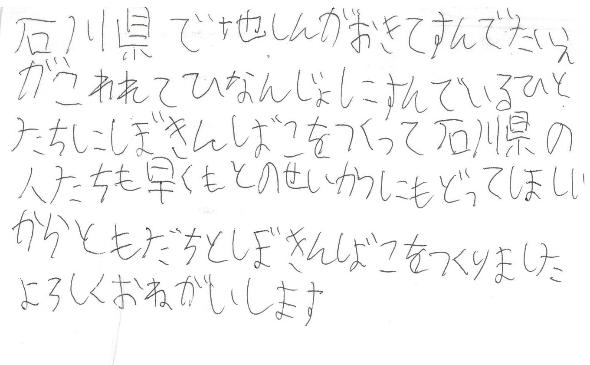 石川県で地しんがおきてすんでたいえ
がこわれてひなんじょにすんでいるひと
たちにしぼきんばこをつくって石川県の
人たちも早くもとのせいかつにもどってほしい
からともだちとしぼきんばこをつくりました
よろしくおねがいします